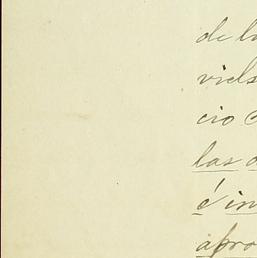 de l
viels
cio
las
é in
apro